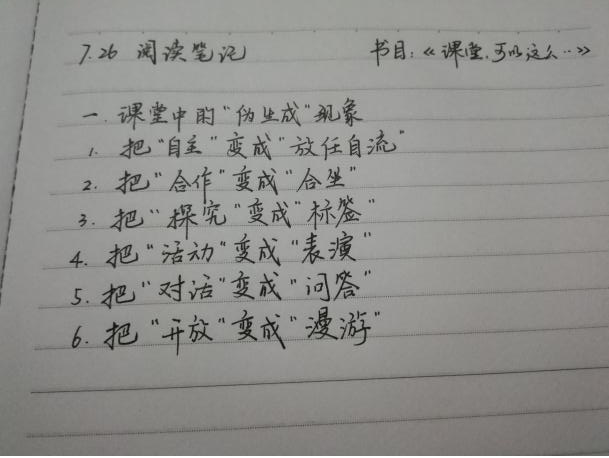 7.26 阅读笔记 书目:《课堂,可以这么··》
一. 课堂中的"伪生成"现象
1. 把"自主"变成"放任自流"
2. 把"合作"变成"合坐"
3. 把"探究"变成"标签"
4. 把"活动"变成"表演"
5. 把"对话"变成"问答"
6. 把"开放"变成"漫游"